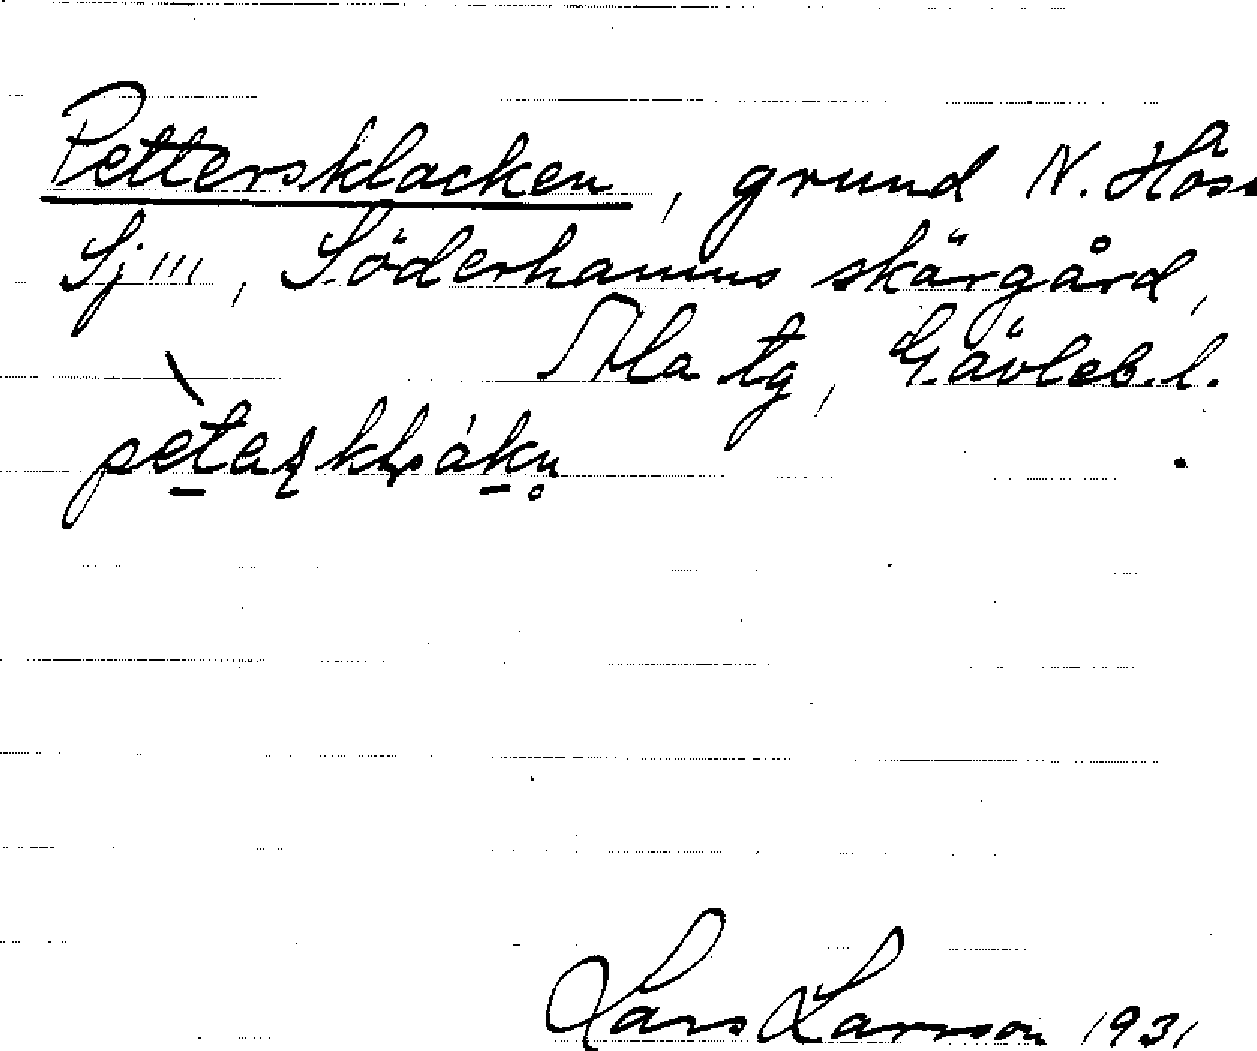 Pettersklacken, grund N. Hås
Sj''', Söderhamns skärgård,
Ala tg, Gävleb. l.
Lars Larsson 1931